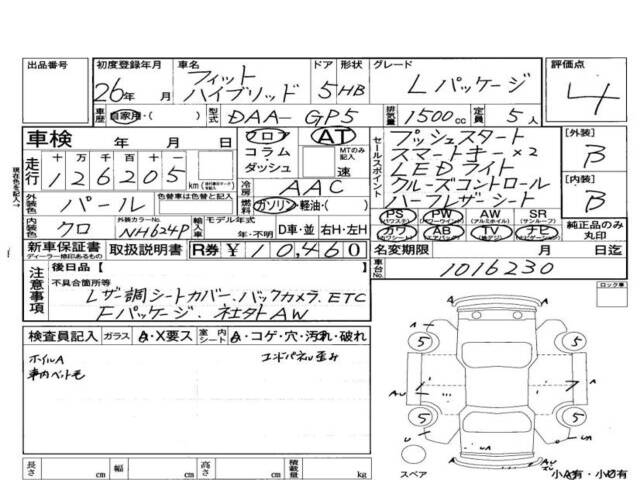 出品番号 初度登録年月 車名 ドア 形状 グレード 評価点
26年 月 フィット ハイブリッド 5 HB Lパッケージ 4
車歴 自家用・( ) 型式 DAA-GP5 排気量 1500cc 定員 5人
車検 年 月 日 フロア AT
コラム・ダッシュ MTのみ記入 速
走行 十万千百十 126205 km
現在色を記入→
外装色 パール 色替車は色替と記入 冷房 AAC
ガソリン・軽油・( )
内装色 クロ 外装カラーNo. NH624P 輸入車 モデル年式 年・不明 D車・並 右H・左H
セールスポイント
プッシュスタート
スマートキー×2
LEDライト
クルーズコントロール
ハーフレザーシート
[外装] B
[内装] B
PS PW AW SR
カワ AB TV ナビ
純正品のみ丸印
新車保証書 取扱説明書 R券 ¥10,460
ディーラー捺印あるもの
名変期限 月 日迄
車台No. 1016230
注意事項
後日品[ ]
不具合箇所等
レザー調シートカバー、バックカメラ、ETC
Fパッケージ、社外AW
ロック車
検査員記入 ガラス A・X要ス 室内シート A・コゲ・穴・汚れ・破れ
ホイルA エンドパネル歪み
車内ペット毛
A
5 5
A
1 7 A
5 5
UA A
スペア 小A有・小U有
長さ cm 幅 cm 高さ cm 積載量 kg